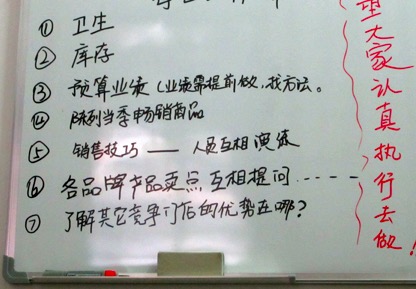 ① 卫生
② 库存
③ 预算业绩（业绩需提前做，找方法。
④ 陈列当季畅销商品
⑤ 销售技巧 —— 人员互相演练
⑥ 各品牌产品卖点互相提问-----
⑦ 了解其它竞争门店的优势在哪？
望大家认真执行去做！